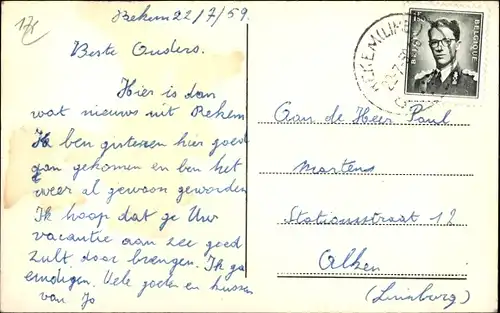 Rekem 22/7/59.
Beste Ouders.
Hier is dan
wat nieuws uit Rekem
Ik ben gisteren hier goed
aan gekomen en ben het
weer al gewoon geworden
Ik hoop dat ge Uw
vacantie aan zee goed
zult door brengen. Ik ga
eindigen. Vele groeten en kussen
van Jo
BELGIQUE
BELGIE
REKEM (LIMB.)
Aan de Heer Paul
Martens
Stationsstraat 12
Alken
(Limburg)